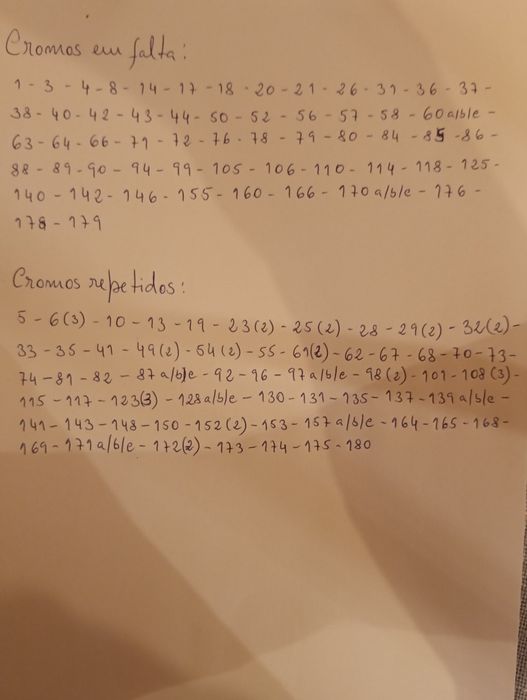 Cromos em falta:
1 - 3 - 4 - 8 - 14 - 17 - 18 - 20 - 21 - 26 - 31 - 36 - 37 -
38 - 40 - 42 - 43 - 44 - 50 - 52 - 56 - 57 - 58 - 60 a/b/e -
63 - 64 - 66 - 71 - 72 - 76 - 78 - 79 - 80 - 84 - 85 - 86 -
88 - 89 - 90 - 94 - 99 - 105 - 106 - 110 - 114 - 118 - 125 -
140 - 142 - 146 - 155 - 160 - 166 - 170 a/b/e - 176 -
178 - 179
Cromos repetidos:
5 - 6(3) - 10 - 13 - 19 - 23(2) - 25(2) - 28 - 29(2) - 32(2) -
33 - 35 - 41 - 49(2) - 54(2) - 55 - 61(2) - 62 - 67 - 68 - 70 - 73 -
74 - 81 - 82 - 87 a/b/e - 92 - 96 - 97 a/b/e - 98(2) - 101 - 108(3) -
115 - 117 - 123(3) - 128 a/b/e - 130 - 131 - 135 - 137 - 139 a/b/e -
141 - 143 - 148 - 150 - 152(2) - 153 - 157 a/b/e - 164 - 165 - 168 -
169 - 171 a/b/e - 172(2) - 173 - 174 - 175 - 180